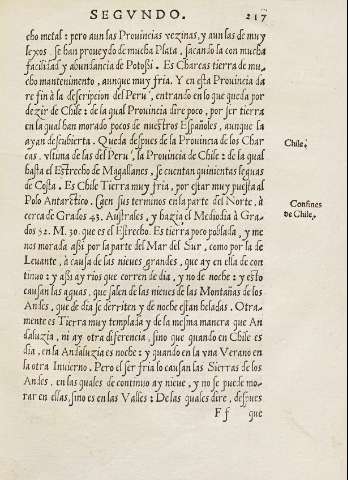 SEGVNDO. 217
cho metal: pero aun las Prouincias vezinas, y aun las de muy
lexos, se han proueydo de mucha Plata, sacando la con mucha
facilidad y abundancia de Potossi. Es Charcas tierra de mu-
cho mantenimento, aunque muy fria. Y en esta Prouincia da
re fin à la descripcion del Peru, entrando en lo que queda por
dezir de Chile: de la qual Prouincia dire poco, por ser tierra
en la qual han morado pocos de nuestros Españoles, aunque la
ayan descubierta. Queda despues de la Prouincia de los Char
cas, vltima de las del Peru, la Prouincia de Chile: de la qual
hasta el Estrecho de Magallanes, se cuentan quinientas leguas
de Costa. Es Chile Tierra muy fria, por estar muy puesta al
Polo Antarctico. Caen sus terminos en la parte del Norte, à
cerca de Grados 43. Australes, y hazia el Mediodia à Gra-
dos 52. M. 30. que es el Estrecho. Es tierra poco poblada, y me
nos morada assi por la parte del Mar del Sur, como por la de
Leuante, à causa de las nieues grandes, que ay en ella de con
tinuo: y assi ay rios que corren de dia, y no de noche: y esto
causan las aguas, que salen de las nieues de las Montañas de los
Andes, que de dia se derriten y de noche estan heladas. Otra-
mente es Tierra muy templada y de la mesma manera que An
daluzia, ni ay otra diferencia, sino que quando en Chile es
dia, en la Andaluzia es noche: y quando en la vna Verano en
la otra Inuierno. Pero el ser frio lo causan las Sierras de los
Andes, en las quales de continuo ay nieue, y no se puede mo-
rar en ellas, sino es en las Valles: De las quales dire, despues
F f que
Chile,
Confines
de Chile.